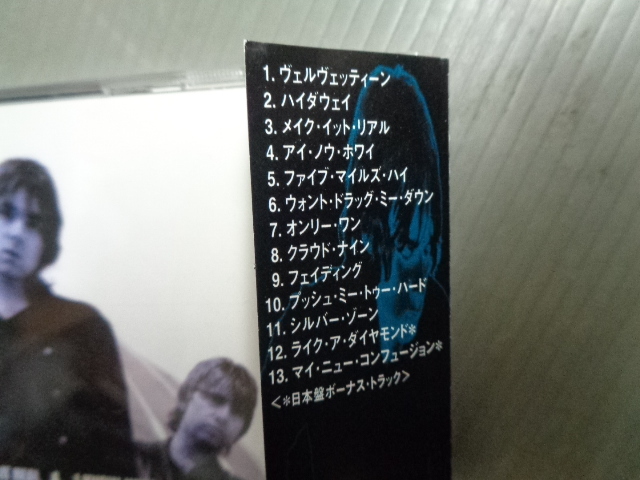 1. ヴェルヴェッティーン
2. ハイダウェイ
3. メイク・イット・リアル
4. アイ・ノウ・ホワイ
5. ファイブ・マイルズ・ハイ
6. ウォント・ドラッグ・ミー・ダウン
7. オンリー・ワン
8. クラウド・ナイン
9. フェイディング
10. プッシュ・ミー・トゥー・ハード
11. シルバー・ゾーン
12. ライク・ア・ダイヤモンド*
13. マイ・ニュー・コンフュージョン*
<*日本盤ボーナス・トラック>